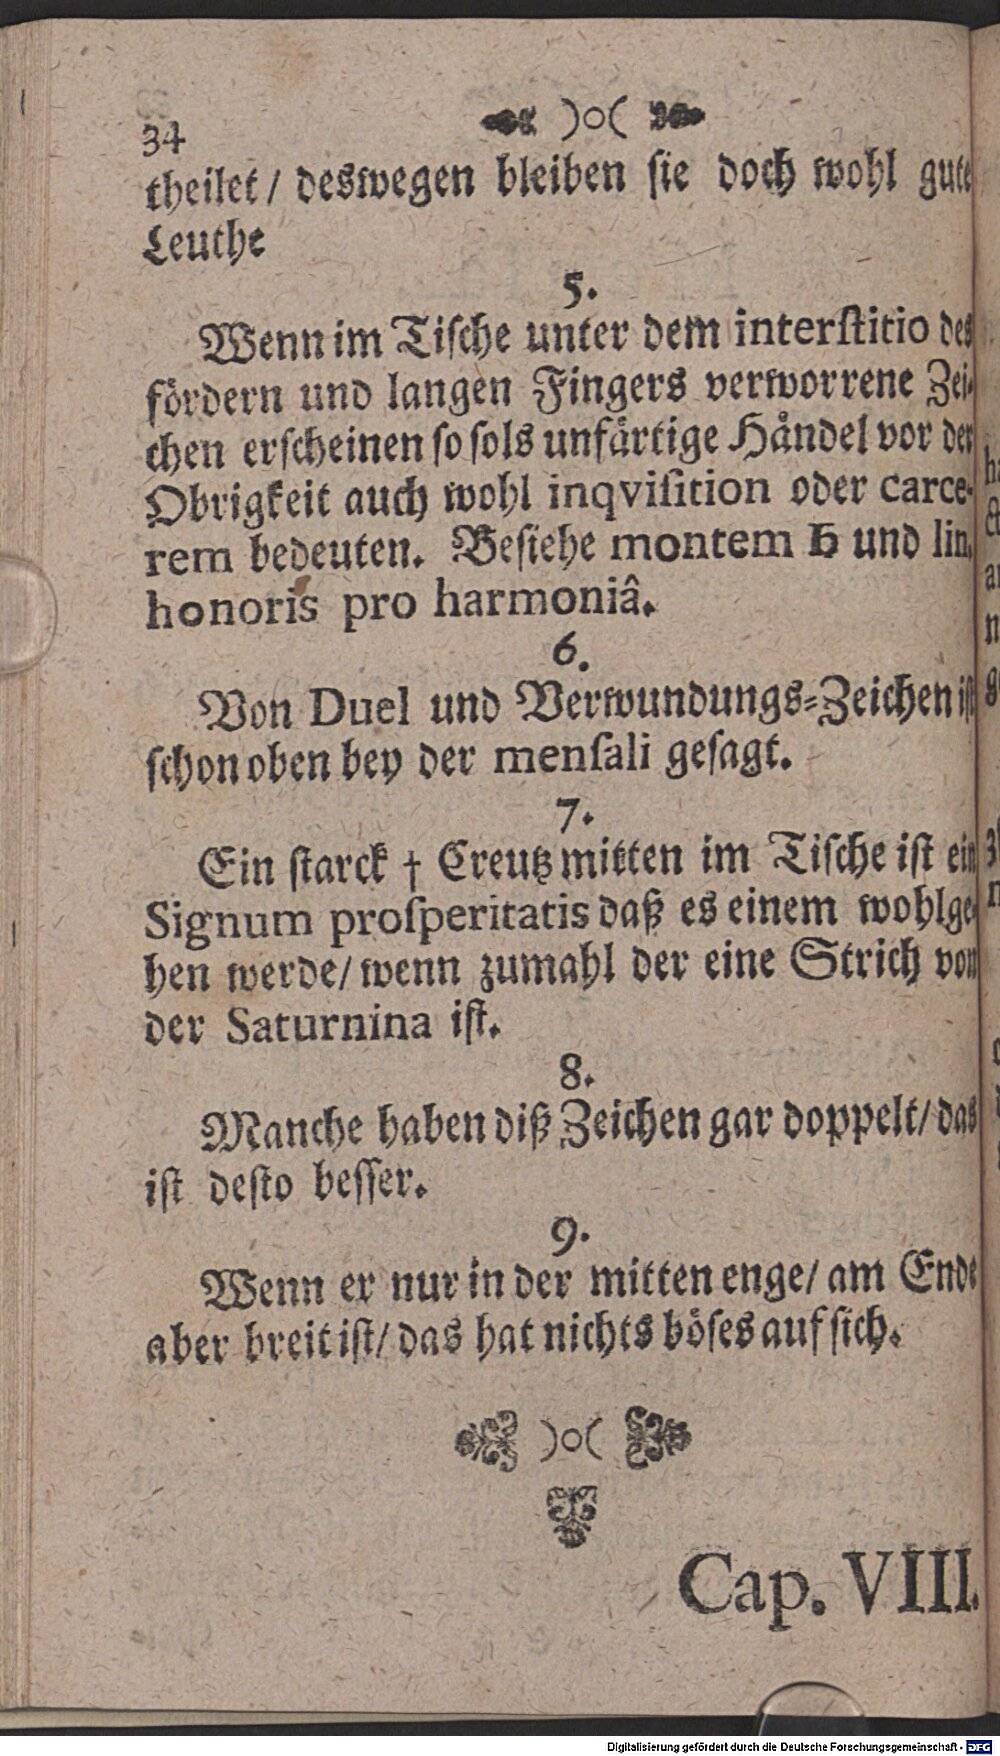 34 )o(
theilet/ deswegen bleiben sie doch wohl gute
Leuthe
5.
Wenn im Tische unter dem interstitio des
fördern und langen Fingers verworrene Zei-
chen erscheinen so sols unfärtige Händel vor der
Obrigkeit auch wohl inqvisition oder carce-
rem bedeuten. Besiehe montem ♄ und lin.
honoris pro harmoniâ.
6.
Von Duel und Verwundungs-Zeichen ist
schon oben bey der mensali gesagt.
7.
Ein starck † Creutz mitten im Tische ist ein
Signum prosperitatis daß es einem wohlge-
hen werde/ wenn zumahl der eine Strich von
der Saturnina ist.
8.
Manche haben diß Zeichen gar doppelt/ das
ist desto besser.
9.
Wenn er nur in der mitten enge/ am Ende
aber breit ist/ das hat nichts böses auf sich.
)o(
Cap. VIII.
Digitalisierung gefördert durch die Deutsche Forschungsgemeinschaft - DFG